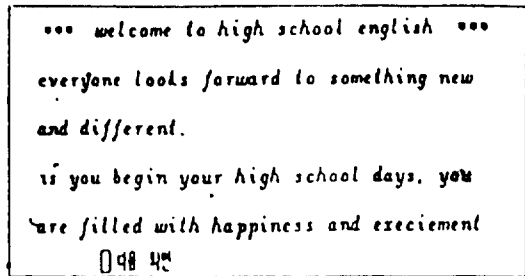 ••• welcome to high school english •••
everyone looks forward to something new
and different.
is you begin your high school days, you
are filled with happiness and execiement